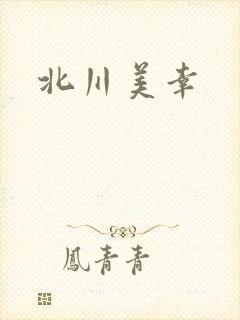 北川美幸
鳳青青